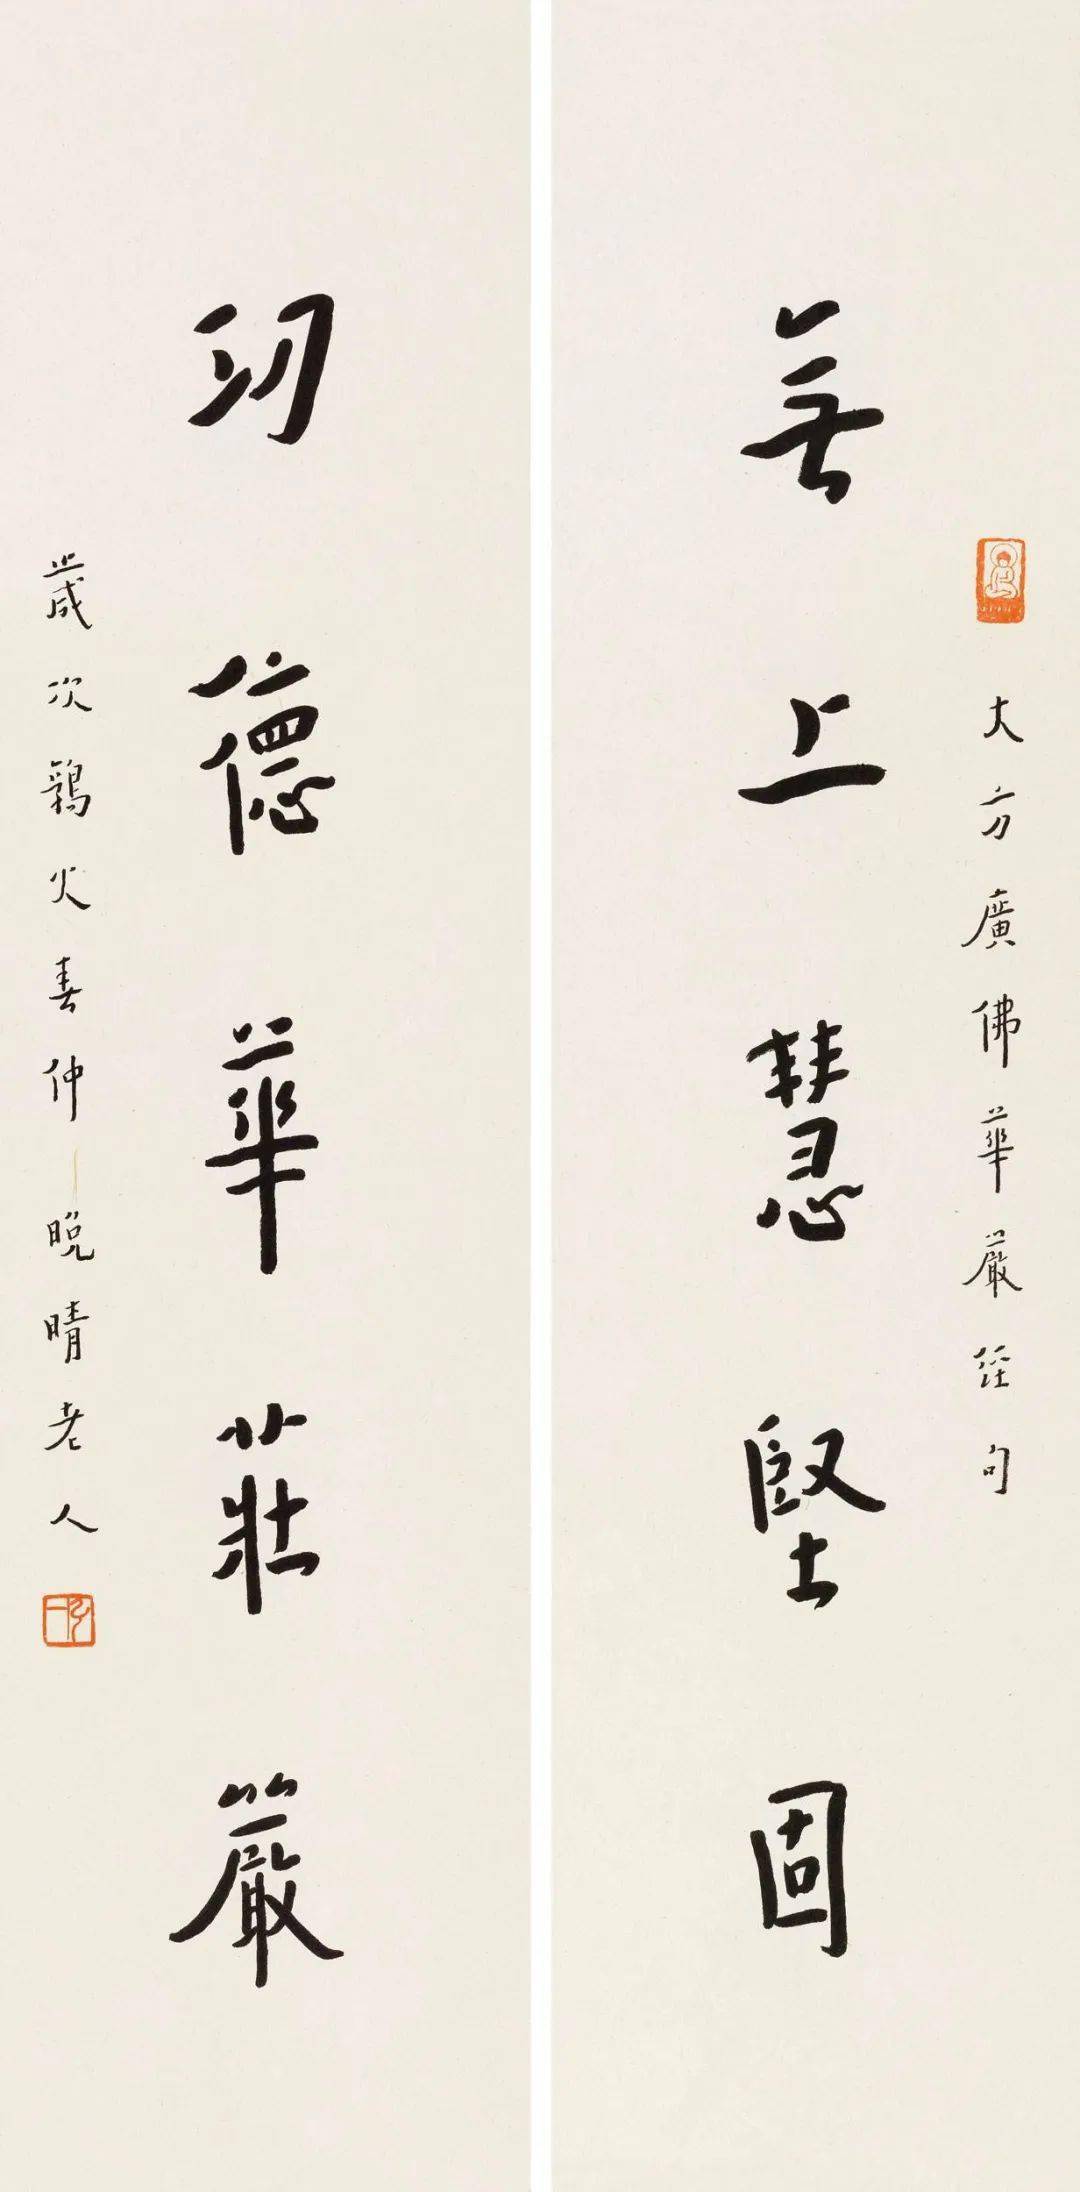 大方廣佛華嚴經句
無上慧堅固
功德華莊嚴
歲次鶉火春仲 晚晴老人
弘一